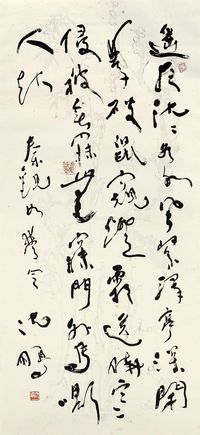 遙夜沈沈如水風緊驛亭深閉
夢破鼠窺燈霜送曉寒
侵被無寐無寐門外馬嘶
人起 秦觀如夢令 沈鵬